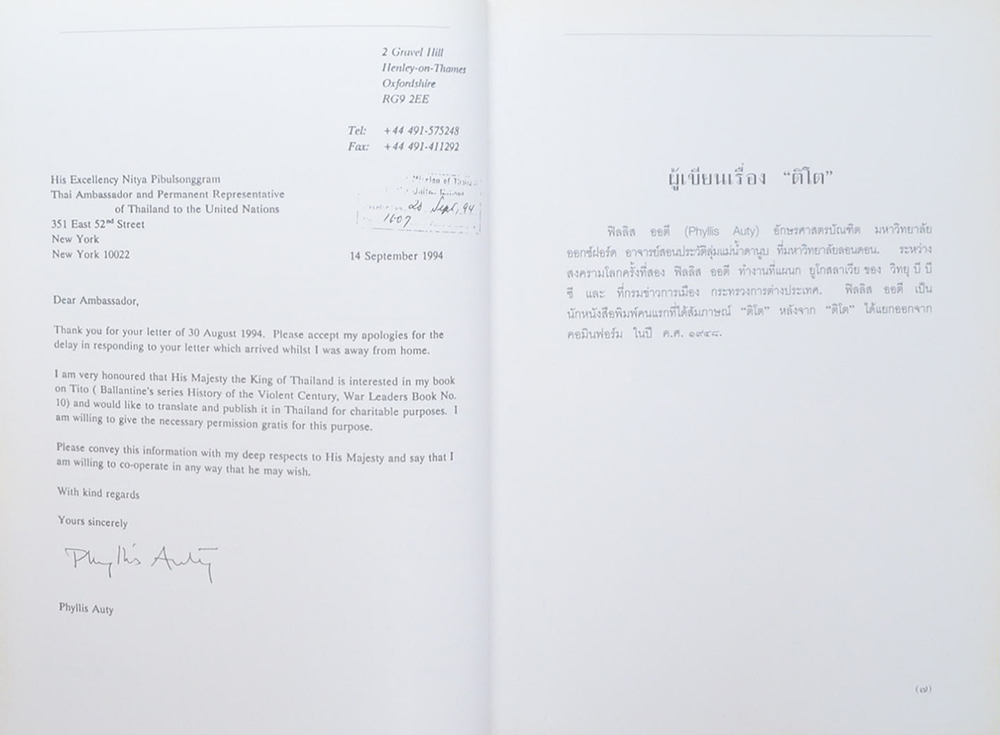 2 Gravel Hill
Henley-on-Thames
Oxfordshire
RG9 2EE
Tel: +44 491-575248
Fax: +44 491-411292
His Excellency Nitya Pibulsonggram
Thai Ambassador and Permanent Representative
of Thailand to the United Nations
351 East 52nd Street
New York
New York 10022
Mission of
20 Sept, 94
1607
14 September 1994
Dear Ambassador,
Thank you for your letter of 30 August 1994. Please accept my apologies for the
delay in responding to your letter which arrived whilst I was away from home.
I am very honoured that His Majesty the King of Thailand is interested in my book
on Tito ( Ballantine's series History of the Violent Century, War Leaders Book No.
10) and would like to translate and publish it in Thailand for charitable purposes. I
am willing to give the necessary permission gratis for this purpose.
Please convey this information with my deep respects to His Majesty and say that I
am willing to co-operate in any way that he may wish.
With kind regards
Yours sincerely
Phyllis Auty
Phyllis Auty
ผู้เขียนเรื่อง "ติโต"
ฟิลลิส ออตี (Phyllis Auty) อักษรศาสตรบัณฑิต มหาวิทยาลัย
ออกซ์ฟอร์ด อาจารย์สอนประวัติลุ่มแม่น้ำดานูบ ที่มหาวิทยาลัยลอนดอน. ระหว่าง
สงครามโลกครั้งที่สอง ฟิลลิส ออตี ทำงานที่แผนก ยูโกสลาเวีย ของ วิทยุ บี บี
ซี และ ที่กรมข่าวการเมือง กระทรวงการต่างประเทศ. ฟิลลิส ออตี เป็น
นักหนังสือพิมพ์คนแรกที่ได้สัมภาษณ์ "ติโต" หลังจาก "ติโต" ได้แยกออกจาก
คอมินฟอร์ม ในปี ค.ศ. ๑๙๔๘.
(๗)